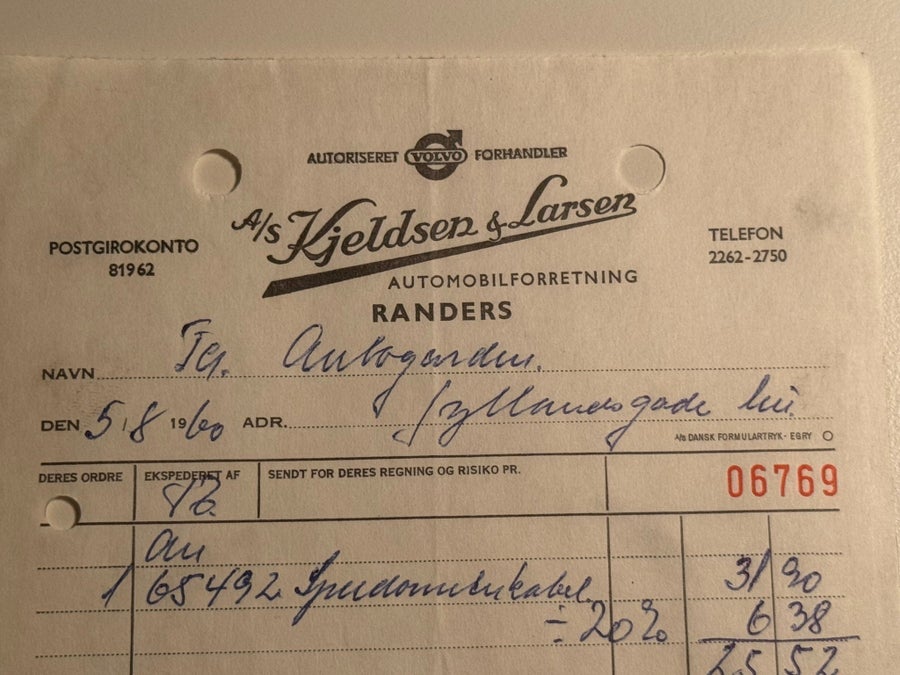 AUTORISERET VOLVO FORHANDLER
A/S Kjeldsen & Larsen
POSTGIROKONTO
81962
TELEFON
2262-2750
AUTOMOBILFORRETNING
RANDERS
NAVN Fa. Autogarden.
DEN 5/8 1960 ADR. Jyllandsgade her.
A/S DANSK FORMULARTRYK - EGRY
DERES ORDRE EKSPEDERET AF SENDT FOR DERES REGNING OG RISIKO PR. 06769
1 65492 Speedometerkabel 31 90
÷ 20% 6 38
25 52